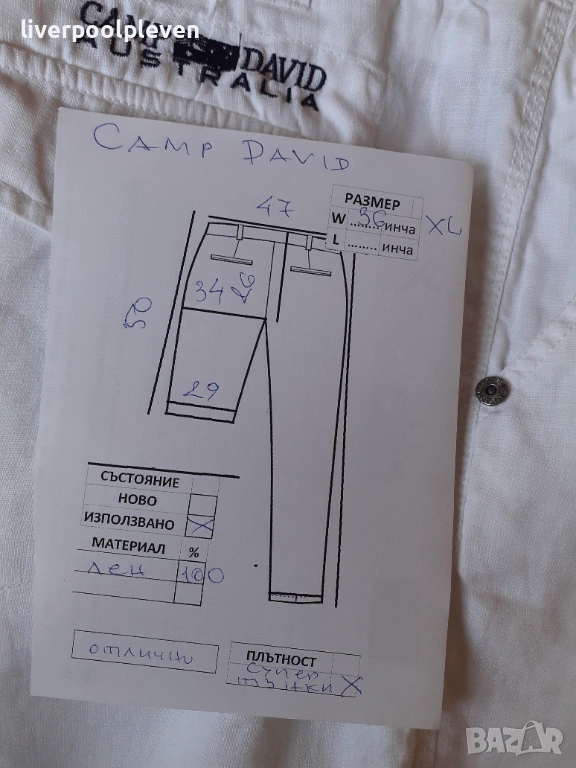 liverpoolpleven
CAMP DAVID
AUSTRALIA
CAMP DAVID
РАЗМЕР
W ...36... инча XL
L ........ инча
47
34 26
50
29
СЪСТОЯНИЕ
НОВО
ИЗПОЛЗВАНО X
МАТЕРИАЛ %
лен 100
отлично
ПЛЪТНОСТ
супер
тънки X
BAZAR